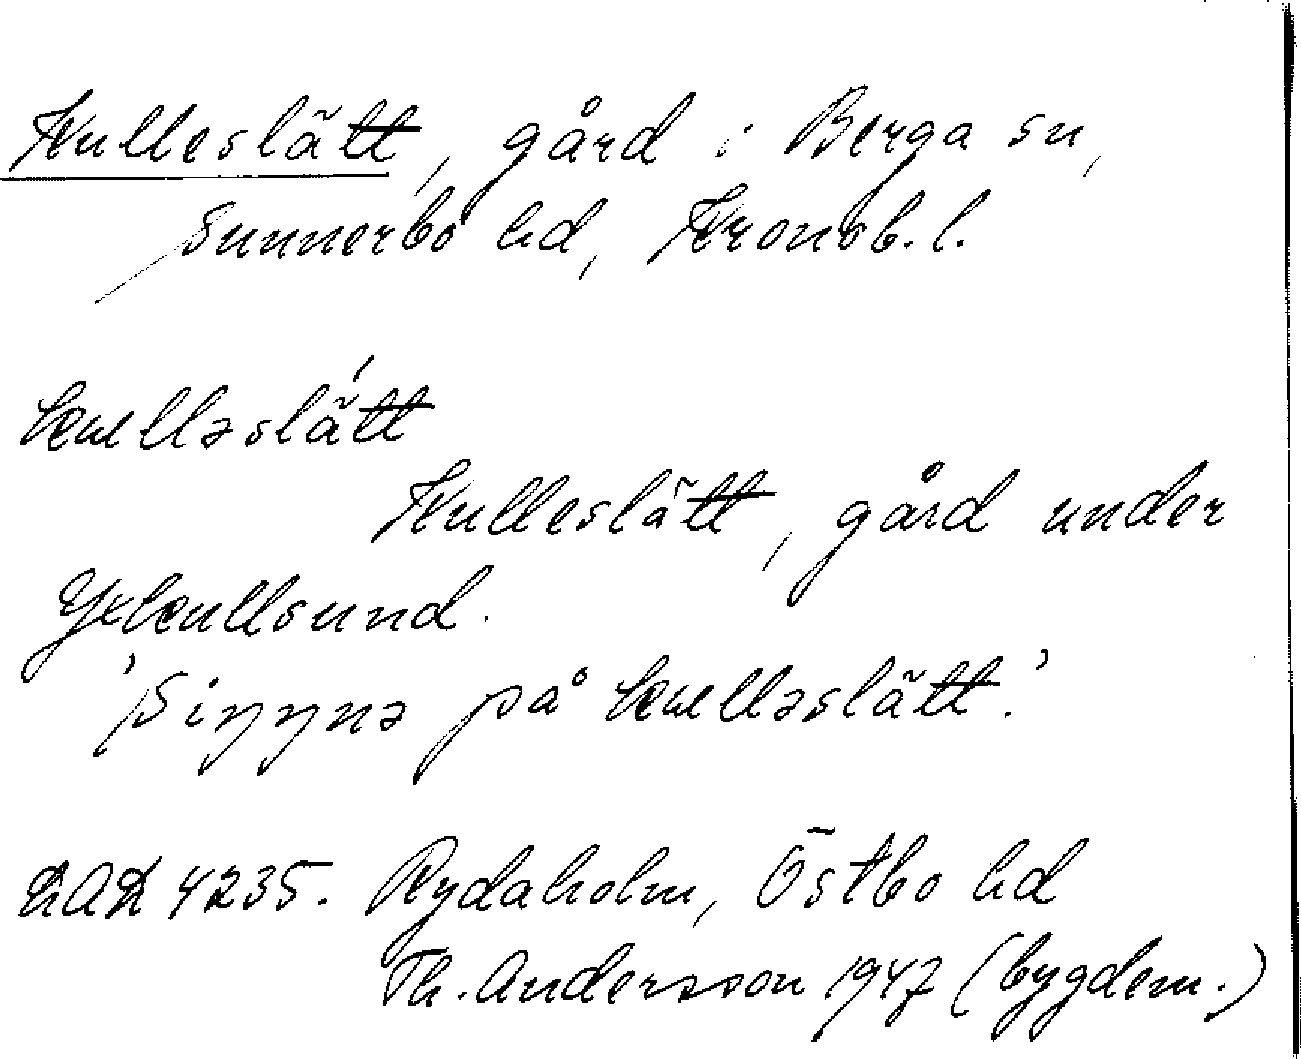 Kulleslätt, gård i Berga sn,
Sunnerbo hd, Kronob. l.
kulləslät́t
Kulleslätt, gård under
Yxkullsund.
'Siŋŋnə på kulləslätt.'
4235. Rydaholm, Östbo hd
Th. Andersson 1947 (bygdem.)